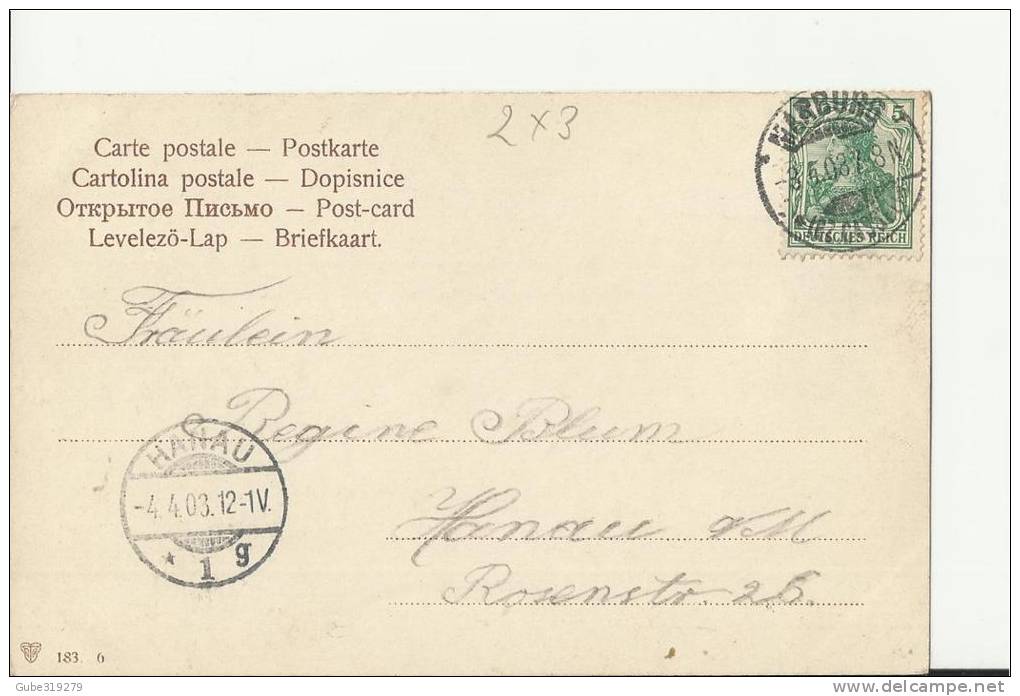 2 x 3
Carte postale — Postkarte
Cartolina postale — Dopisnice
Открытое Письмо — Post-card
Levelező-Lap — Briefkaart.
MARBURG
5
DEUTSCHES REICH
Fräulein
Regine Blum
Hanau a/M
Rosenstr. 26.
HANAU
-4.4.03.12-1V.
* 1 g
183. 6
Gube319279
www.delcampe.net